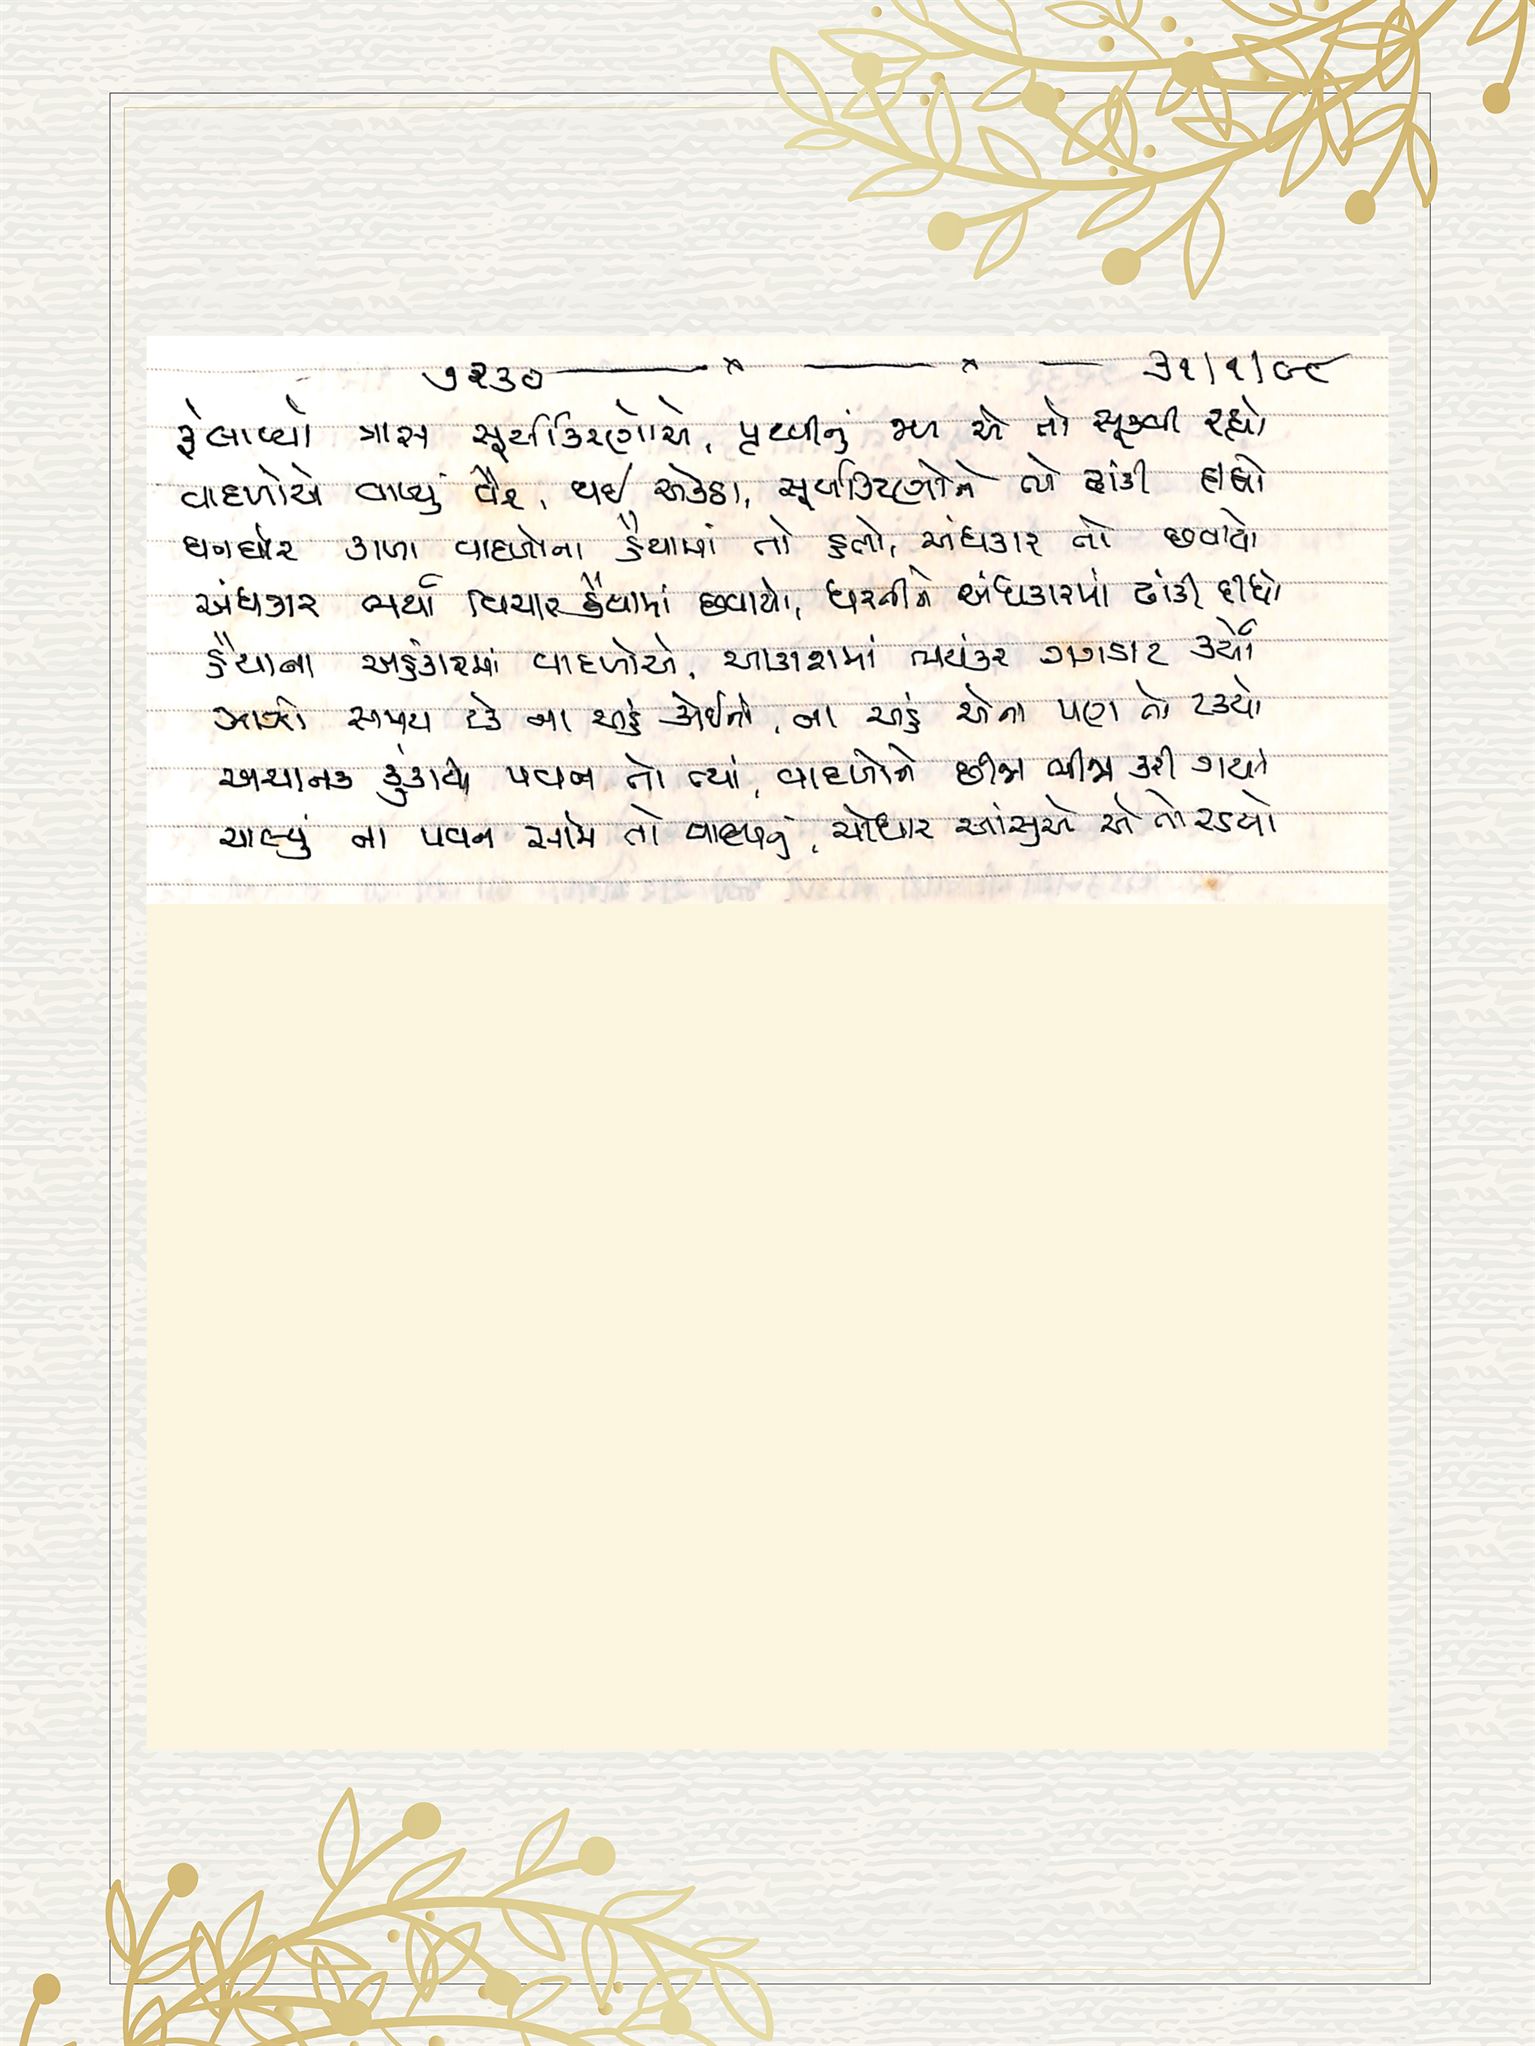 ૭૨૩૦ ——— × ——— × — ૩૧/૧/૯૯
ફેલાવ્યો ત્રાસ સૂર્યકિરણોએ, પૃથ્વીનું જળ એ તો સૂકવી રહ્યો
વાદળોએ વાળ્યું વૈર, થઈ એકઠા, સૂર્યકિરણોને તો ઢાંકી દીધો
ઘનઘોર કાળા વાદળોના હૈયામાં તો હતો, અંધકાર તો છવાયો
અંધકાર ભર્યો વિચાર હૈયામાં છવાયો, ધરતીને અંધકારમાં ઢાંકી દીધો
હૈયાના અહંકારમાં વાદળોએ, આકાશમાં ભયંકર ગગડાટ કર્યો
ઝાઝો સમય ટકે ના અહં કોઈનો, ના અહં એનો પણ તો ટક્યો
અચાનક ફૂંકાયો પવન તો ત્યાં, વાદળોને છીન્ન ભીન્ન કરી ગયો
ચાલ્યું ના પવન સામે તો વાદળનું, ચોધાર આંસુએ એ તો રડયો